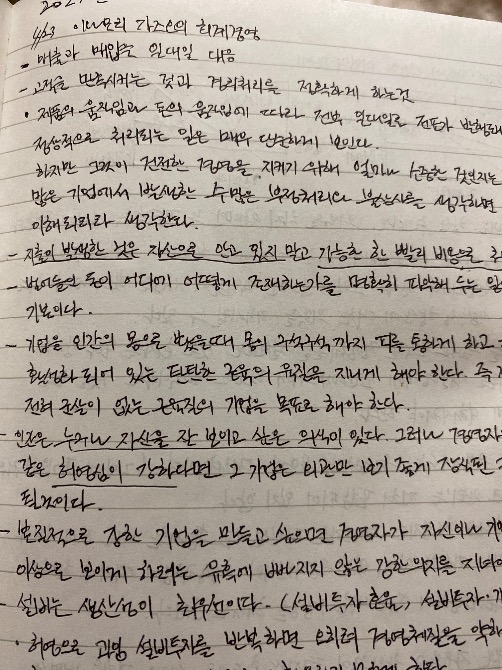 2021.
4/23 이나모리 가즈오의 회계경영
- 매출과 매입을 일대일 대응
- 고객을 만족시키는 것과 경리처리를 정확하게 하는건
• 제품의 움직임과 돈의 움직임에 따라 전부 일대일로 전표가 발행되어
정상적으로 처리되는 일은 매우 단순하게 보인다.
하지만 그것이 건전한 경영을 지키기 위해 얼마나 소중한 것인지는
많은 기업에서 발생한 수많은 부정처리와 불상사를 생각하면
이해되리라 생각한다.
- 지출이 발생한 것은 자산으로 안고 있지 말고 가능한 한 빨리 비용으로
- 벌어들인 돈이 어디에 어떻게 존재하는가를 명확히 파악해 두는 일
기본이다.
- 기업을 인간의 몸으로 봤을때 몸의 구석구석까지 피를 통하게 하고
활성화 되어 있는 탄탄한 근육의 육질을 지니게 해야 한다. 즉
전혀 군살이 없는 근육질의 기업을 목표로 해야 한다.
- 인간은 누구나 자신을 잘 보이고 싶은 의식이 있다. 그러나 경영자가
같은 허영심이 강하다면 그 기업은 외관만 보기 좋게 장식된
될것이다.
- 본질적으로 강한 기업을 만들고 싶으면 경영자가 자신이나 기업
이상으로 보이게 하려는 유혹에 빠지지 않는 강한 의지를 지녀야
- 설비는 생산성이 최우선이다. (설비투자 효율, 설비투자
• 허영으로 과잉 설비투자를 반복하면 오히려 경영체질을 악화